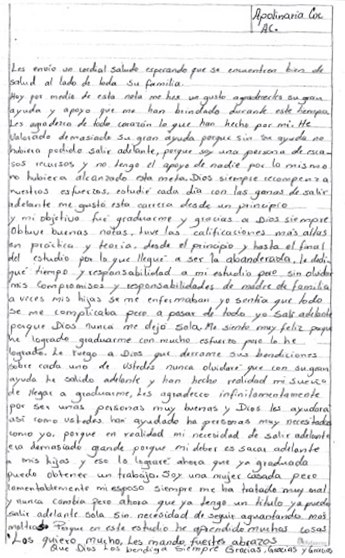 Apolinaria Coc
AC.
Les envio un cordial saludo esperando que se encuentren bien de
salud al lado de toda su familia.
Hoy por medio de esta nota me hes un gusto agradecerles su gran
ayuda y apoyo que me han brindado durante este tiempo.
Les agradezco de todo corazón lo que han hecho por mi. He
Valorado demasiado Su gran ayuda porque sin su ayuda no
hubiera podido salir adelante, porque soy una persona de esca-
sos recursos y no tengo el apoyo de nadie por lo mismo
no hubiera alcanzado esta meta. Dios siempre recompenza
nuestros esfuerzos, estudié cada dia con las ganas de salir
adelante me gustó esta carrera desde un principio
y mi objetivo fué graduarme y gracias a Dios siempre
Obtuve buenas notas, tuve las calificaciones más altas
en práctica y teoria, desde el principio y hasta el final
del estudio por lo que llegué a ser la abanderada, le dedi-
qué tiempo y responsabilidad a mi estudio pero sin olvidar
mis Compromisos y responsabilidades de madre de familia
a veces mis hijas se me enfermaban yo sentia que todo
se me complicaba pero a pesar de todo yo Sali adelante
porque Dios nunca me dejó sola. Me siento muy feliz porque
he logrado graduarme con mucho esfuerzo pero lo he
logrado. Le ruego a Dios que derrame sus bendiciones
sobre cada uno de Ustedes nunca olvidaré que con su gran
ayuda he salido adelante y han hecho realidad mi Sueño
de llegar a graduarme, Les agradezco infinitamente
por ser unas personas muy buenas y Dios les ayudará
asi como ustedes han ayudado ha personas muy necesitadas
como yo, porque en realidad mi necesidad de salir adelante
era demasiado grande porque mi deber es sacar adelante
a mis hijas y eso lo lograré ahora que ya graduada
puedo obtener un trabajo. Soy una mujer casada pero
lamentablemente mi esposo siempre me ha tratado muy mal
y nunca cambia pero ahora que ya tengo un titulo ya puedo
salir adelante sola sin necesidad de seguir aguantando más
maltrato. Porque en este estudio he aprendido muchas cosas
Los quiero mucho, Les mando fuertes abrazos
Que Dios Los bendiga siempre Gracias, Gracias y Gracias